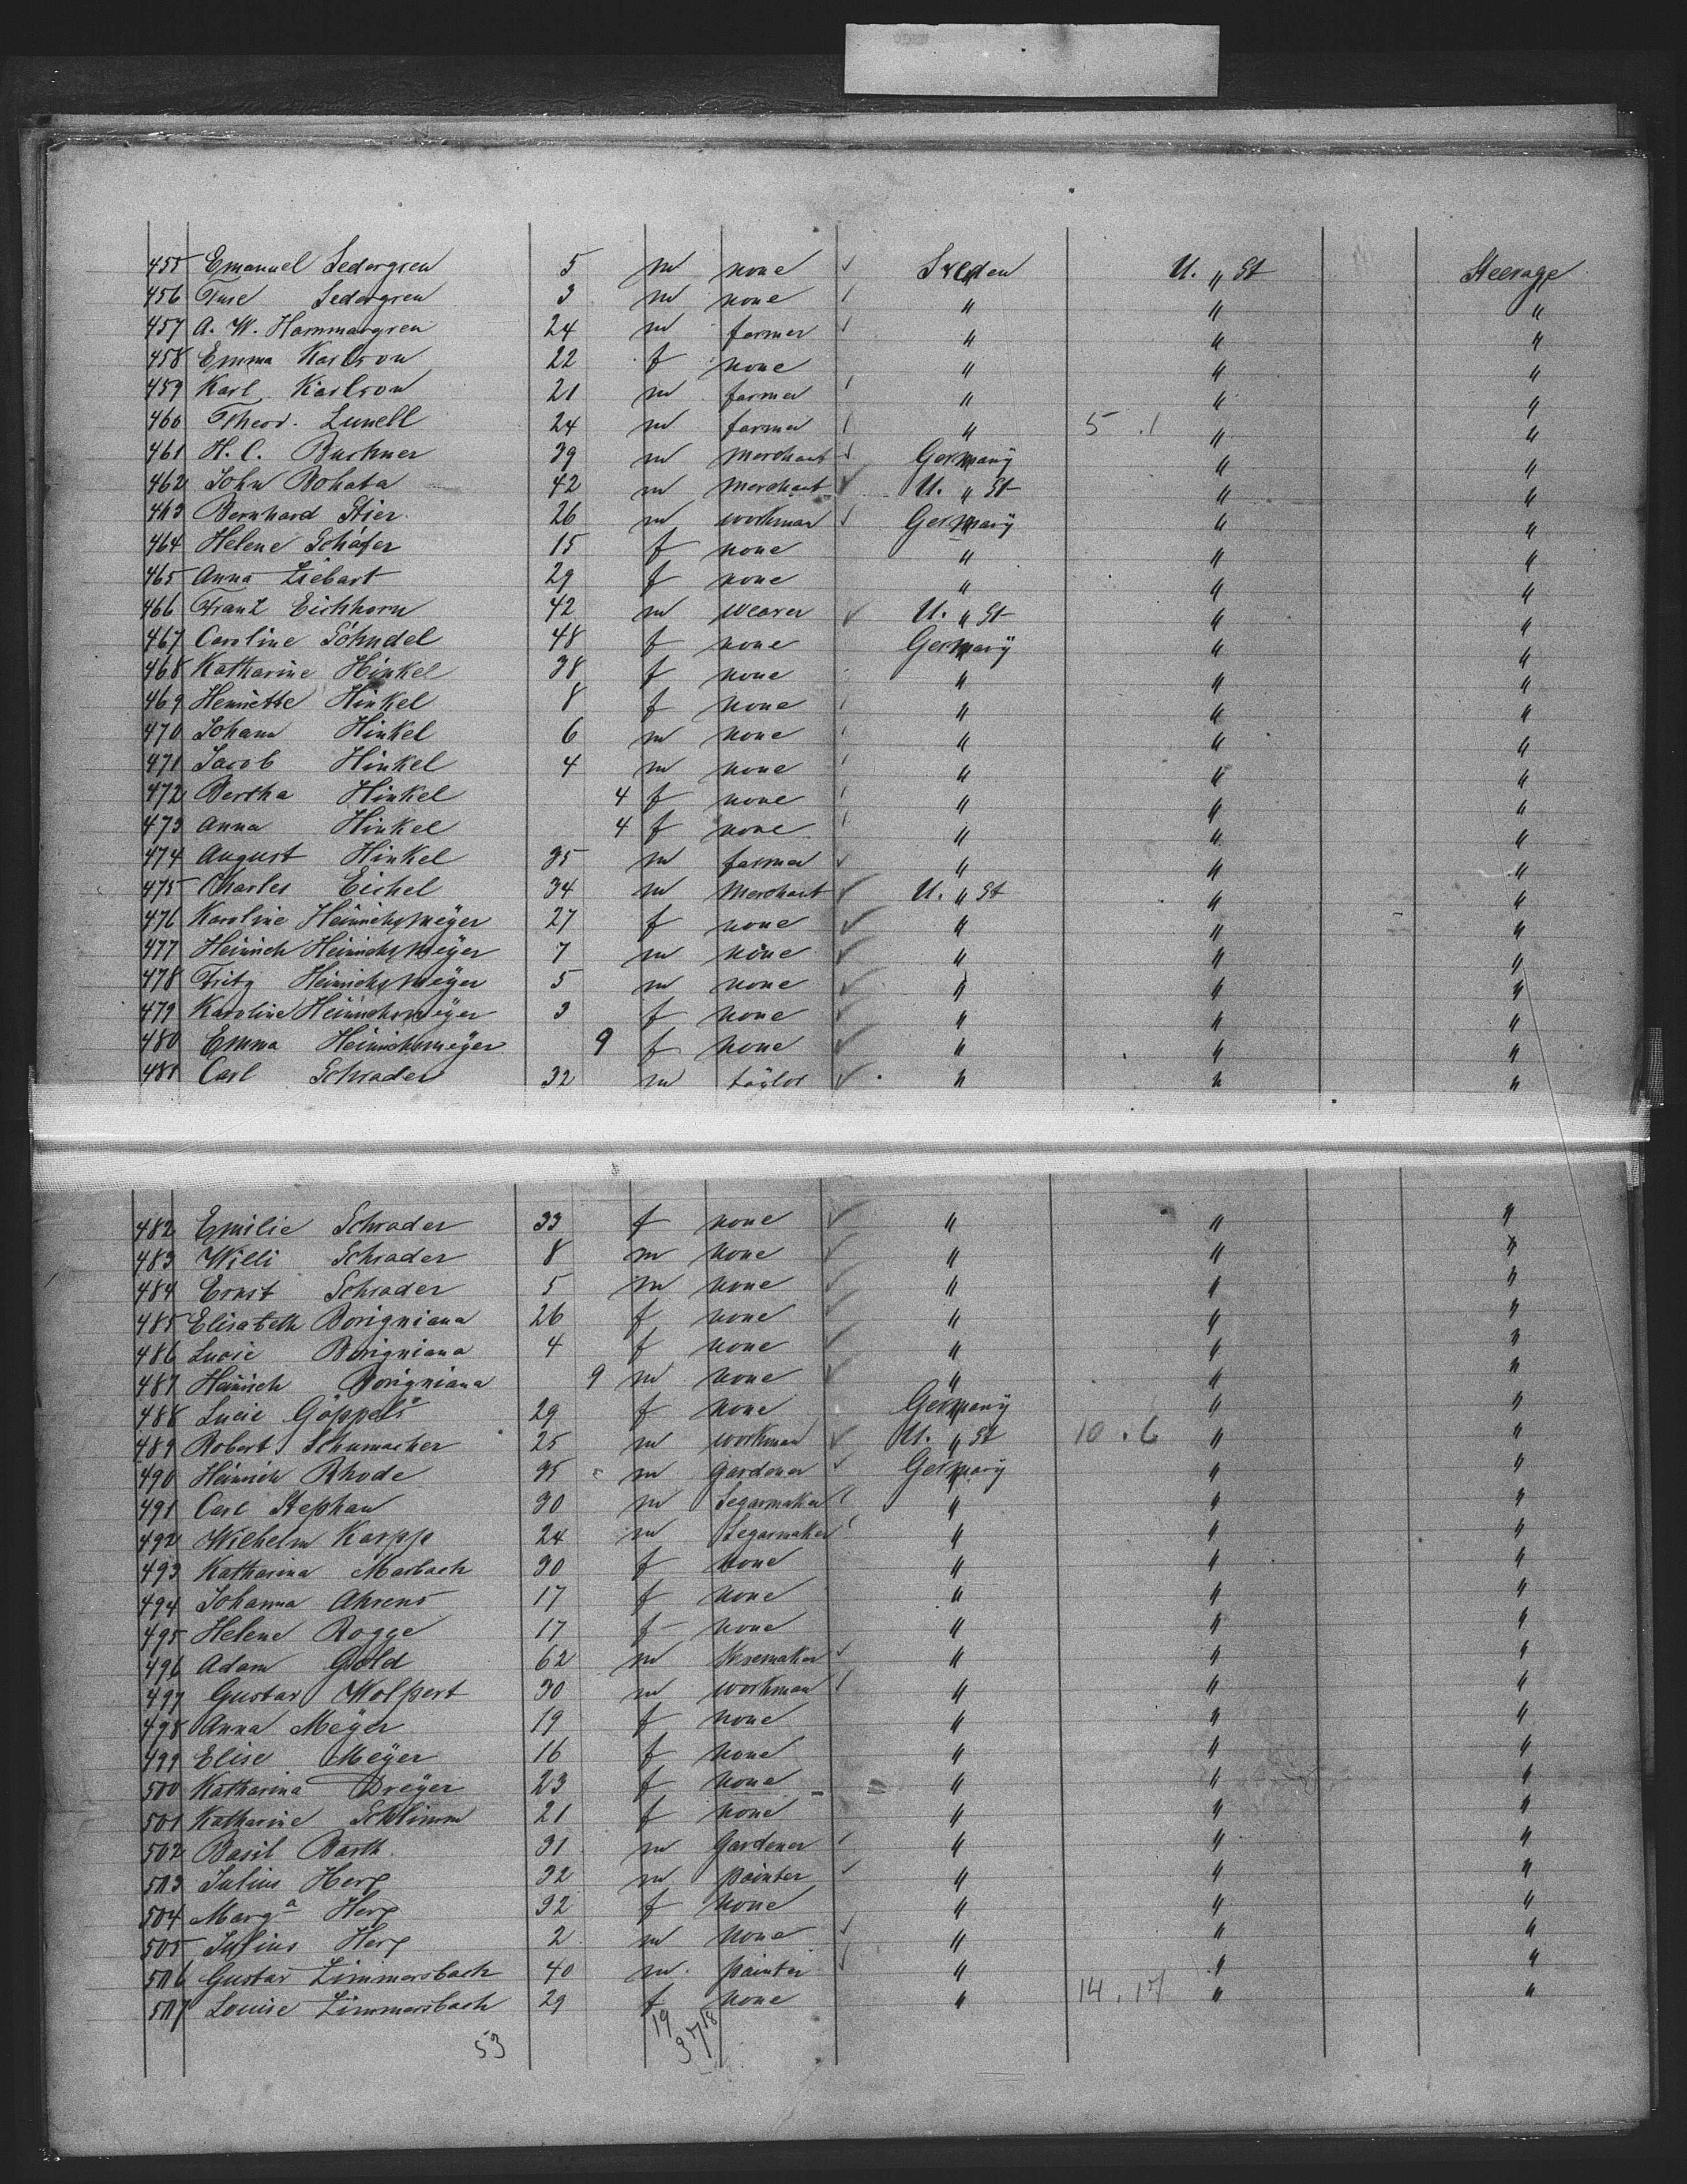 455 Emanuel Sedergren 5 m none ✓ Sveden U. " St Steerage
456 Ture Sedergren 3 m none " " "
457 A. W. Hammargren 24 m farmer " " "
458 Emma Karlson 22 f none " " "
459 Karl Karlson 21 m farmer " " "
460 Theod. Lunell 24 m farmer " 5 . 1 " "
461 H. C. Buchner 39 m merchant Germany " "
462 John Bohata 42 m merchant ✓ U. " St " "
463 Bernhard Stier 26 m workman ✓ Germany " "
464 Helene Schäfer 15 f none " " "
465 Anna Liebart 29 f none " " "
466 Franz Eichhorn 42 m weaver ✓ U. " St " "
467 Caroline Söhndel 48 f none Germany " "
468 Katharine Hinkel 38 f none " " "
469 Henriette Hinkel 8 f none " " "
470 Johann Hinkel 6 m none " " "
471 Jacob Hinkel 4 m none " " "
472 Bertha Hinkel 4 f none " " "
473 Anna Hinkel 4 f none " " "
474 August Hinkel 35 m farmer ✓ " " "
475 Charles Eichel 34 m merchant ✓ U. " St " "
476 Karoline Heinrichsmeÿer 27 f none ✓ " " "
477 Heinrich Heinrichsmeÿer 7 m none ✓ " " "
478 Fritz Heinrichsmeÿer 5 m none ✓ " " "
479 Karoline Heinrichsmeÿer 3 f none ✓ " " "
480 Emma Heinrichsmeÿer 9 f none ✓ " " "
481 Carl Schrader 32 m taÿlor ✓ " " "
482 Emilie Schrader 33 f none ✓ " " "
483 Willi Schrader 8 m none ✓ " " "
484 Ernst Schrader 5 m none ✓ " " "
485 Elisabeth Borigniana 26 f none ✓ " " "
486 Lucie Borigniana 4 f none ✓ " " "
487 Heinrich Borigniana 9 m none ✓ " " "
488 Lucie Göppels 29 f none Germany " "
489 Robert Schumacher 25 m workman ✓ U. " St 10 . 6 " "
490 Heinrich Rhode 35 m gardener ✓ Germany " "
491 Carl Stephan 30 m Segarmaker " " "
492 Wilhelm Karpp 24 m Segarmaker " " "
493 Katharina Marbach 30 f none " " "
494 Johanna Ahrens 17 f none " " "
495 Helene Rogge 17 f none " " "
496 Adam Gold 62 m ✓ " " "
497 Gustav Wolpert 30 m workman " " "
498 Anna Meÿer 19 f none " " "
499 Elise Meÿer 16 f none " " "
500 Katharina Dreÿer 23 f none " " "
501 Katharine Schlimm 21 f none " " "
502 Basil Barth 31 m gardener " " "
503 Julius Herp 32 m painter ✓ " " "
504 Marg<sup>a</sup> Herp 32 f none " " "
505 Julius Herp 2 m none ✓ " " "
506 Gustav Zimmersbach 40 m painter ✓ " " "
507 Louise Zimmersbach 29 f none " 14 . 17 " "
53 19 37 18